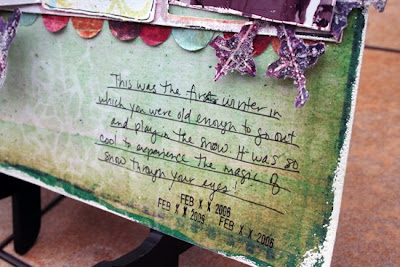 This was the first winter in
which you were old enough to go out
and play in the snow. It was so
cool to experience the magic of
snow through your eyes!
FEB X X 2006
FEB X X 2006 FEB X X 2006